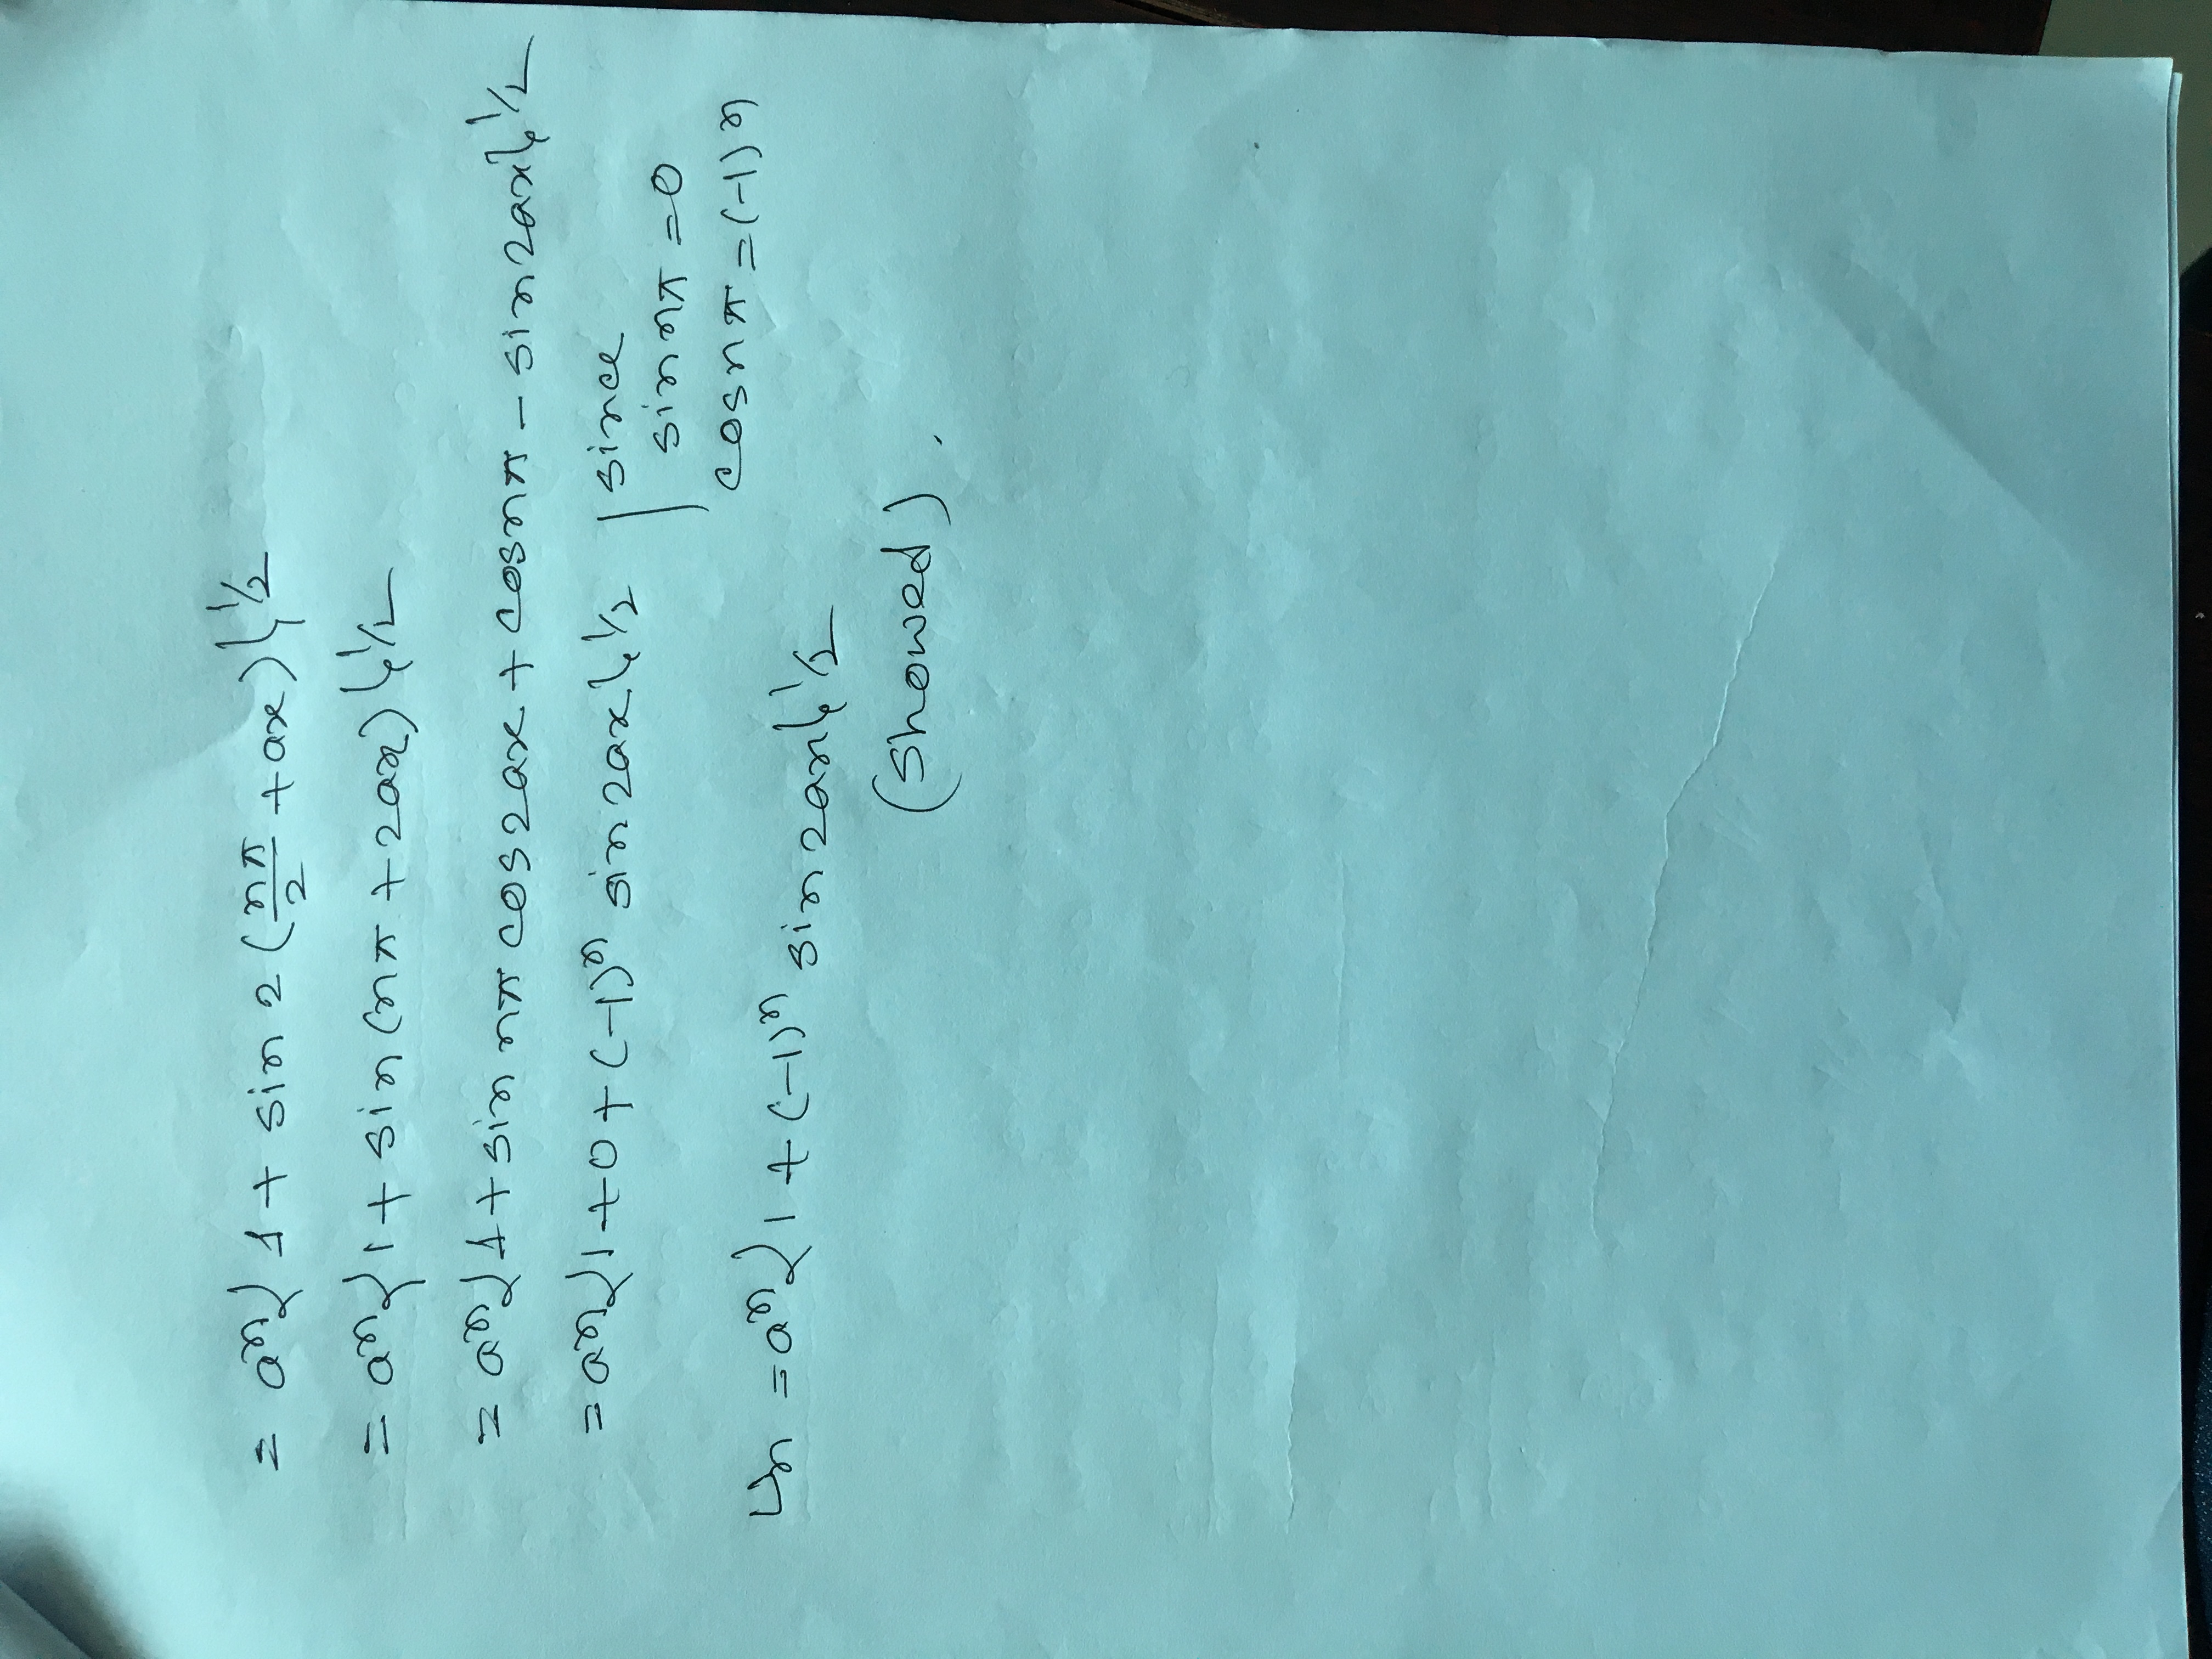 = aⁿ{1 + sin 2(nπ/2 + ax)}^1/2
= aⁿ{1 + sin(nπ + 2ax)}^1/2
= aⁿ{1 + sin nπ cos2ax + cosnπ - sin2ax}^1/2
= aⁿ{1 + 0 + (-1)ⁿ sin2ax}^1/2 | since
sin nπ = 0
cosnπ = (-1)ⁿ
yn = aⁿ{1 + (-1)ⁿ sin2ax}^1/2
(showed).